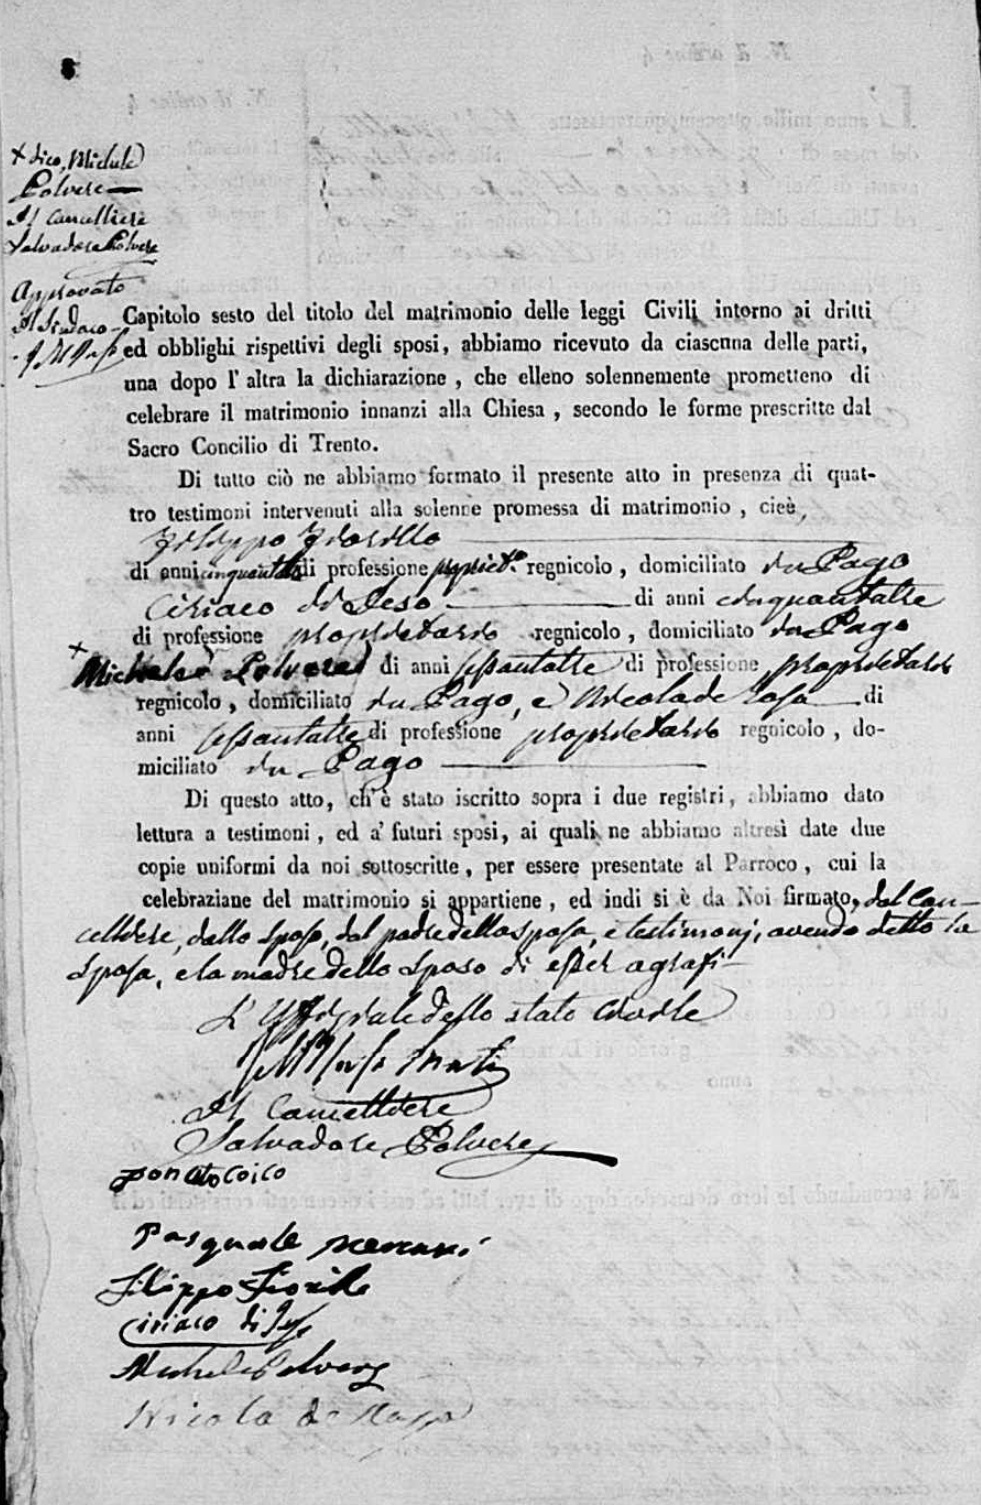 + dico, Michele
Polvere
Il Cancelliere
Salvadore Polvere
Approvato
Il Sindaco
Capitolo sesto del titolo del matrimonio delle leggi Civili intorno ai dritti
ed obblighi rispettivi degli sposi, abbiamo ricevuto da ciascuna delle parti,
una dopo l'altra la dichiarazione, che elleno solennemente prometteno di
celebrare il matrimonio innanzi alla Chiesa, secondo le forme prescritte dal
Sacro Concilio di Trento.
Di tutto ciò ne abbiamo formato il presente atto in presenza di quat-
tro testimoni intervenuti alla solenne promessa di matrimonio, cioè,
Filippo Fiorillo
di anni cinquanta di professione propriet.o regnicolo, domiciliato in Pago
Ciriaco di Jeso di anni cinquantatre
di professione proprietario regnicolo, domiciliato in Pago
+ Michele Polvere di anni sessantatre di professione proprietario
regnicolo, domiciliato in Pago, e Nicola de Rosa di
anni sessantatre di professione proprietario regnicolo, do-
miciliato in Pago
Di questo atto, ch'è stato iscritto sopra i due registri, abbiamo dato
lettura a testimoni, ed a' futuri sposi, ai quali ne abbiamo altresì date due
copie uniformi da noi sottoscritte, per essere presentate al Parroco, cui la
celebraziane del matrimonio si appartiene, ed indi si è da Noi firmato, dal Can-
celliere, dallo sposo, dal padre della sposa, e testimonj, avendo detto la
sposa, e la madre dello sposo di esser agrafi
L'Uffiziale dello stato Civile
Il Cancelliere
Salvadore Polvere
Donato Coico
Pasquale
Filippo Fiorillo
Ciriaco di Jeso
Michele Polvere
Nicola de Rosa